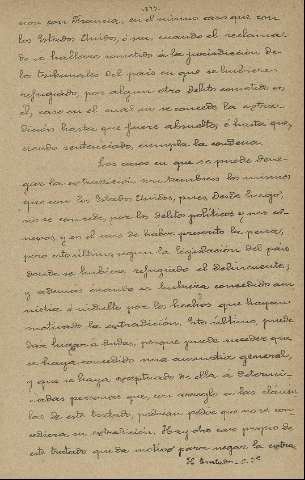 cion con Francia, en el mismo caso que con
los Estados Unidos, ó sea, cuando el reclama-
do se hallare sometido á la jurisdicción de
los tribunales del país en que se hubiere
refugiado, por algun otro delito cometido en
él, caso en el cual no se concede la extra-
dicion hasta que fuere absuelto, ó hasta que,
siendo sentenciado, cumpla la condena.
Los casos en que se puede dene-
gar la extradición son tambien los mismos
que con los Estados Unidos, pues desde luego,
no se concede, por los delitos políticos y sus co-
nexos y en el caso de haber prescrito la pena,
pero esto último, segun la legislación del país
donde se hubiere refugiado el delincuente;
y ademas cuando se hubiera concedido am-
nistia ó indulto por los hechos que hayan
motivado la extradición. Esto último, puede
dar lugar a dudas, porque puede suceder que
se haya concedido una amnistia general,
y que se haya exceptuado de ella á determi-
nadas personas que, con arreglo a las cláusu-
las de este tratado, podrian pedir que no se con-
cediera su extradición. Hay otro caso propio de
este tratado que da motivo para negar la extra-